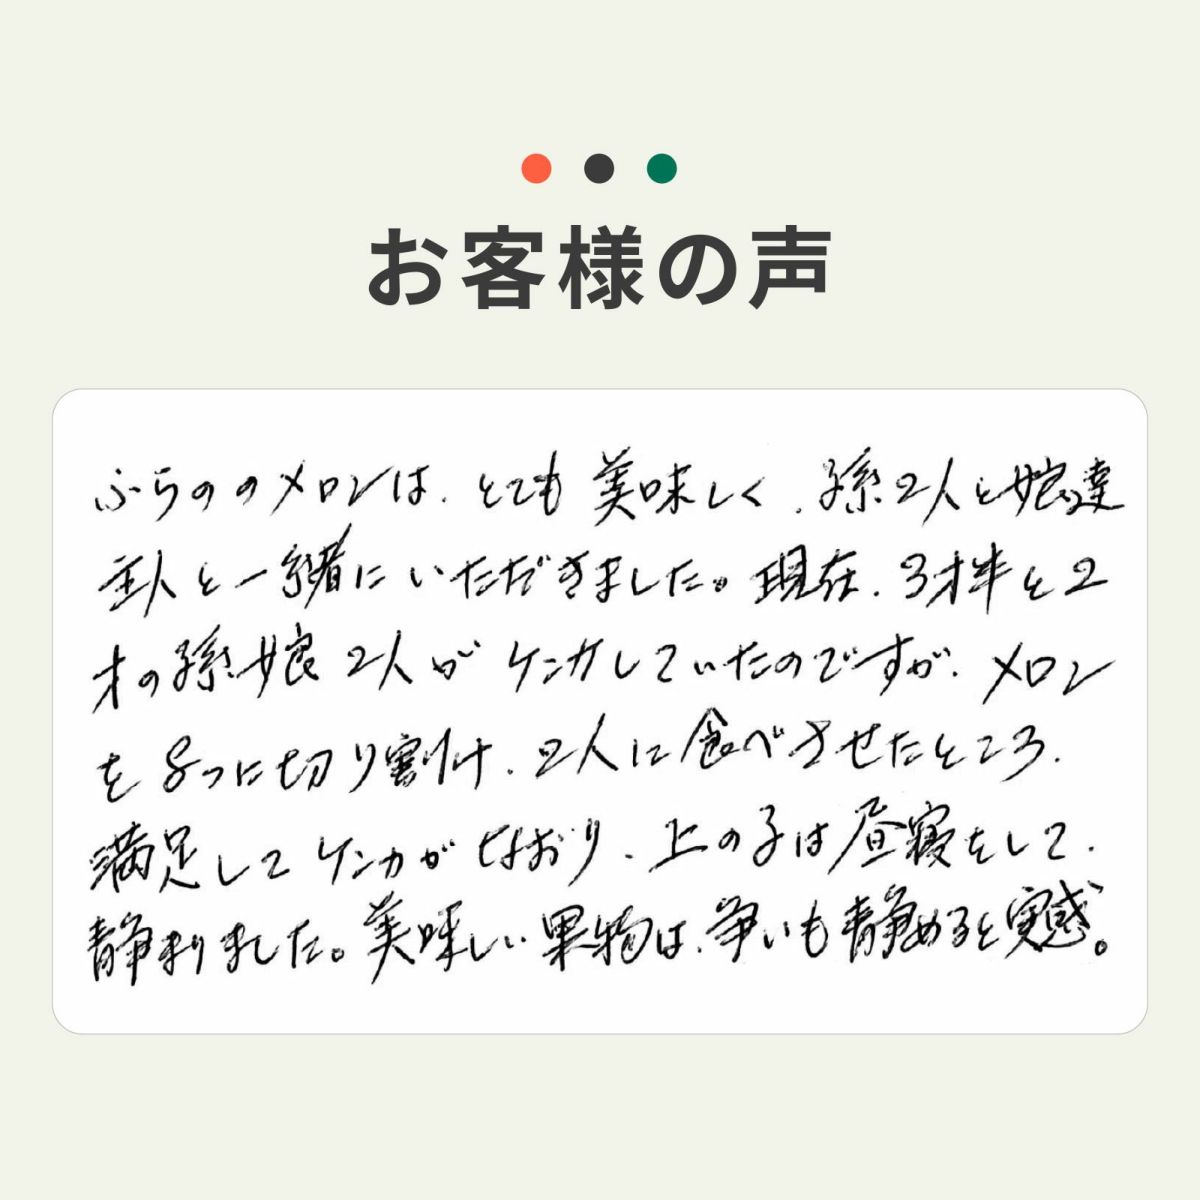 お客様の声
ふらののメロンは、とても美味しく、孫2人と娘達
主人と一緒にいただきました。現在、3才半と2
才の孫娘2人がケンカしていたのですが、メロン
を8つに切り割け、2人に食べさせたところ、
満足してケンカがなおり、上の子は昼寝をして、
静まりました。美味しい果物は、争いも静めると実感。